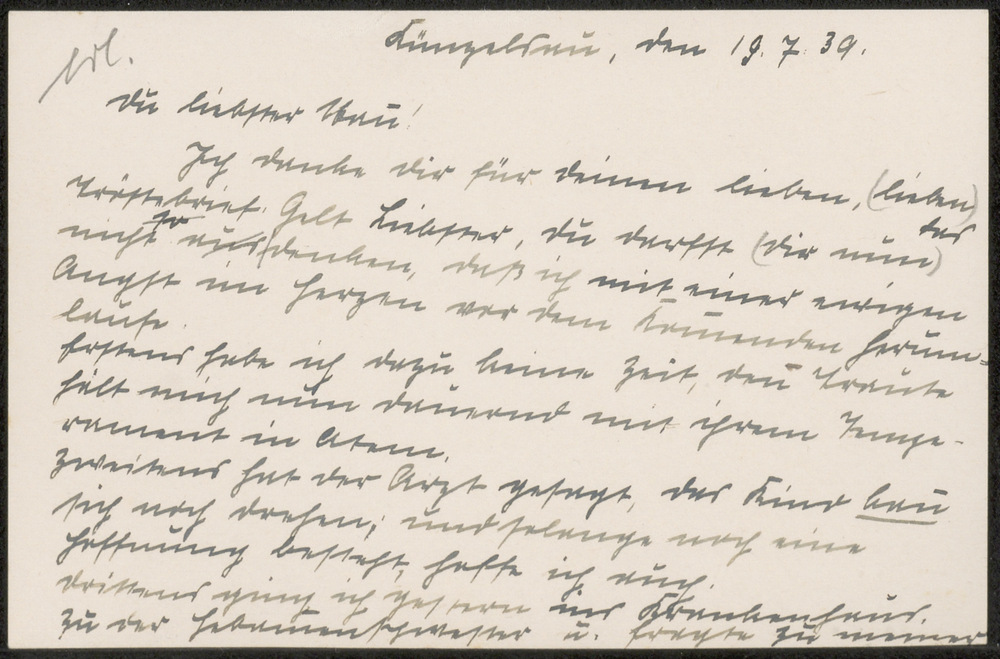 erl.
Künzelsau, den 19.7.39.
Du liebster Mau!
Ich danke dir für deinen lieben, (lieben)
Tröstebrief. Gelt Liebster, du darfst (dir nun) das
nicht so ausdenken, daß ich mit einer ewigen
Angst im Herzen vor dem Kom̅enden herum-
laufe.
Erstens habe ich dazu keine Zeit, den̅ Traute
hält mich nun dauernd mit ihrem Tempe-
rament in Atem.
Zweitens hat der Arzt gesagt, das Kind kan̅
sich noch drehen; und solange noch eine
Hoffnung besteht, hoffe ich auch.
Drittens ging ich gestern ins Krankenhaus.
Zu der Hebam̅enschwester u. fragte zu meiner